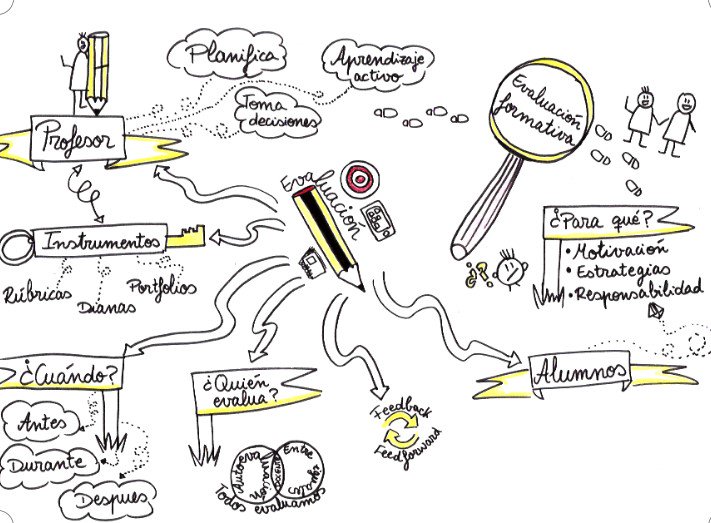 Planifica
Aprendizaje
activo
Toma
decisiones
Profesor
Evaluación
formativa
Evaluación
Instrumentos
Rúbricas
Dianas
Portfolios
¿Para qué?
• Motivación
• Estrategias
• Responsabilidad
Alumnos
¿Cuándo?
Antes
Durante
Despues
¿Quién
evalua?
Autoeva
luación
Entre
iguales
Todos evaluamos
Feedback
Feedforward